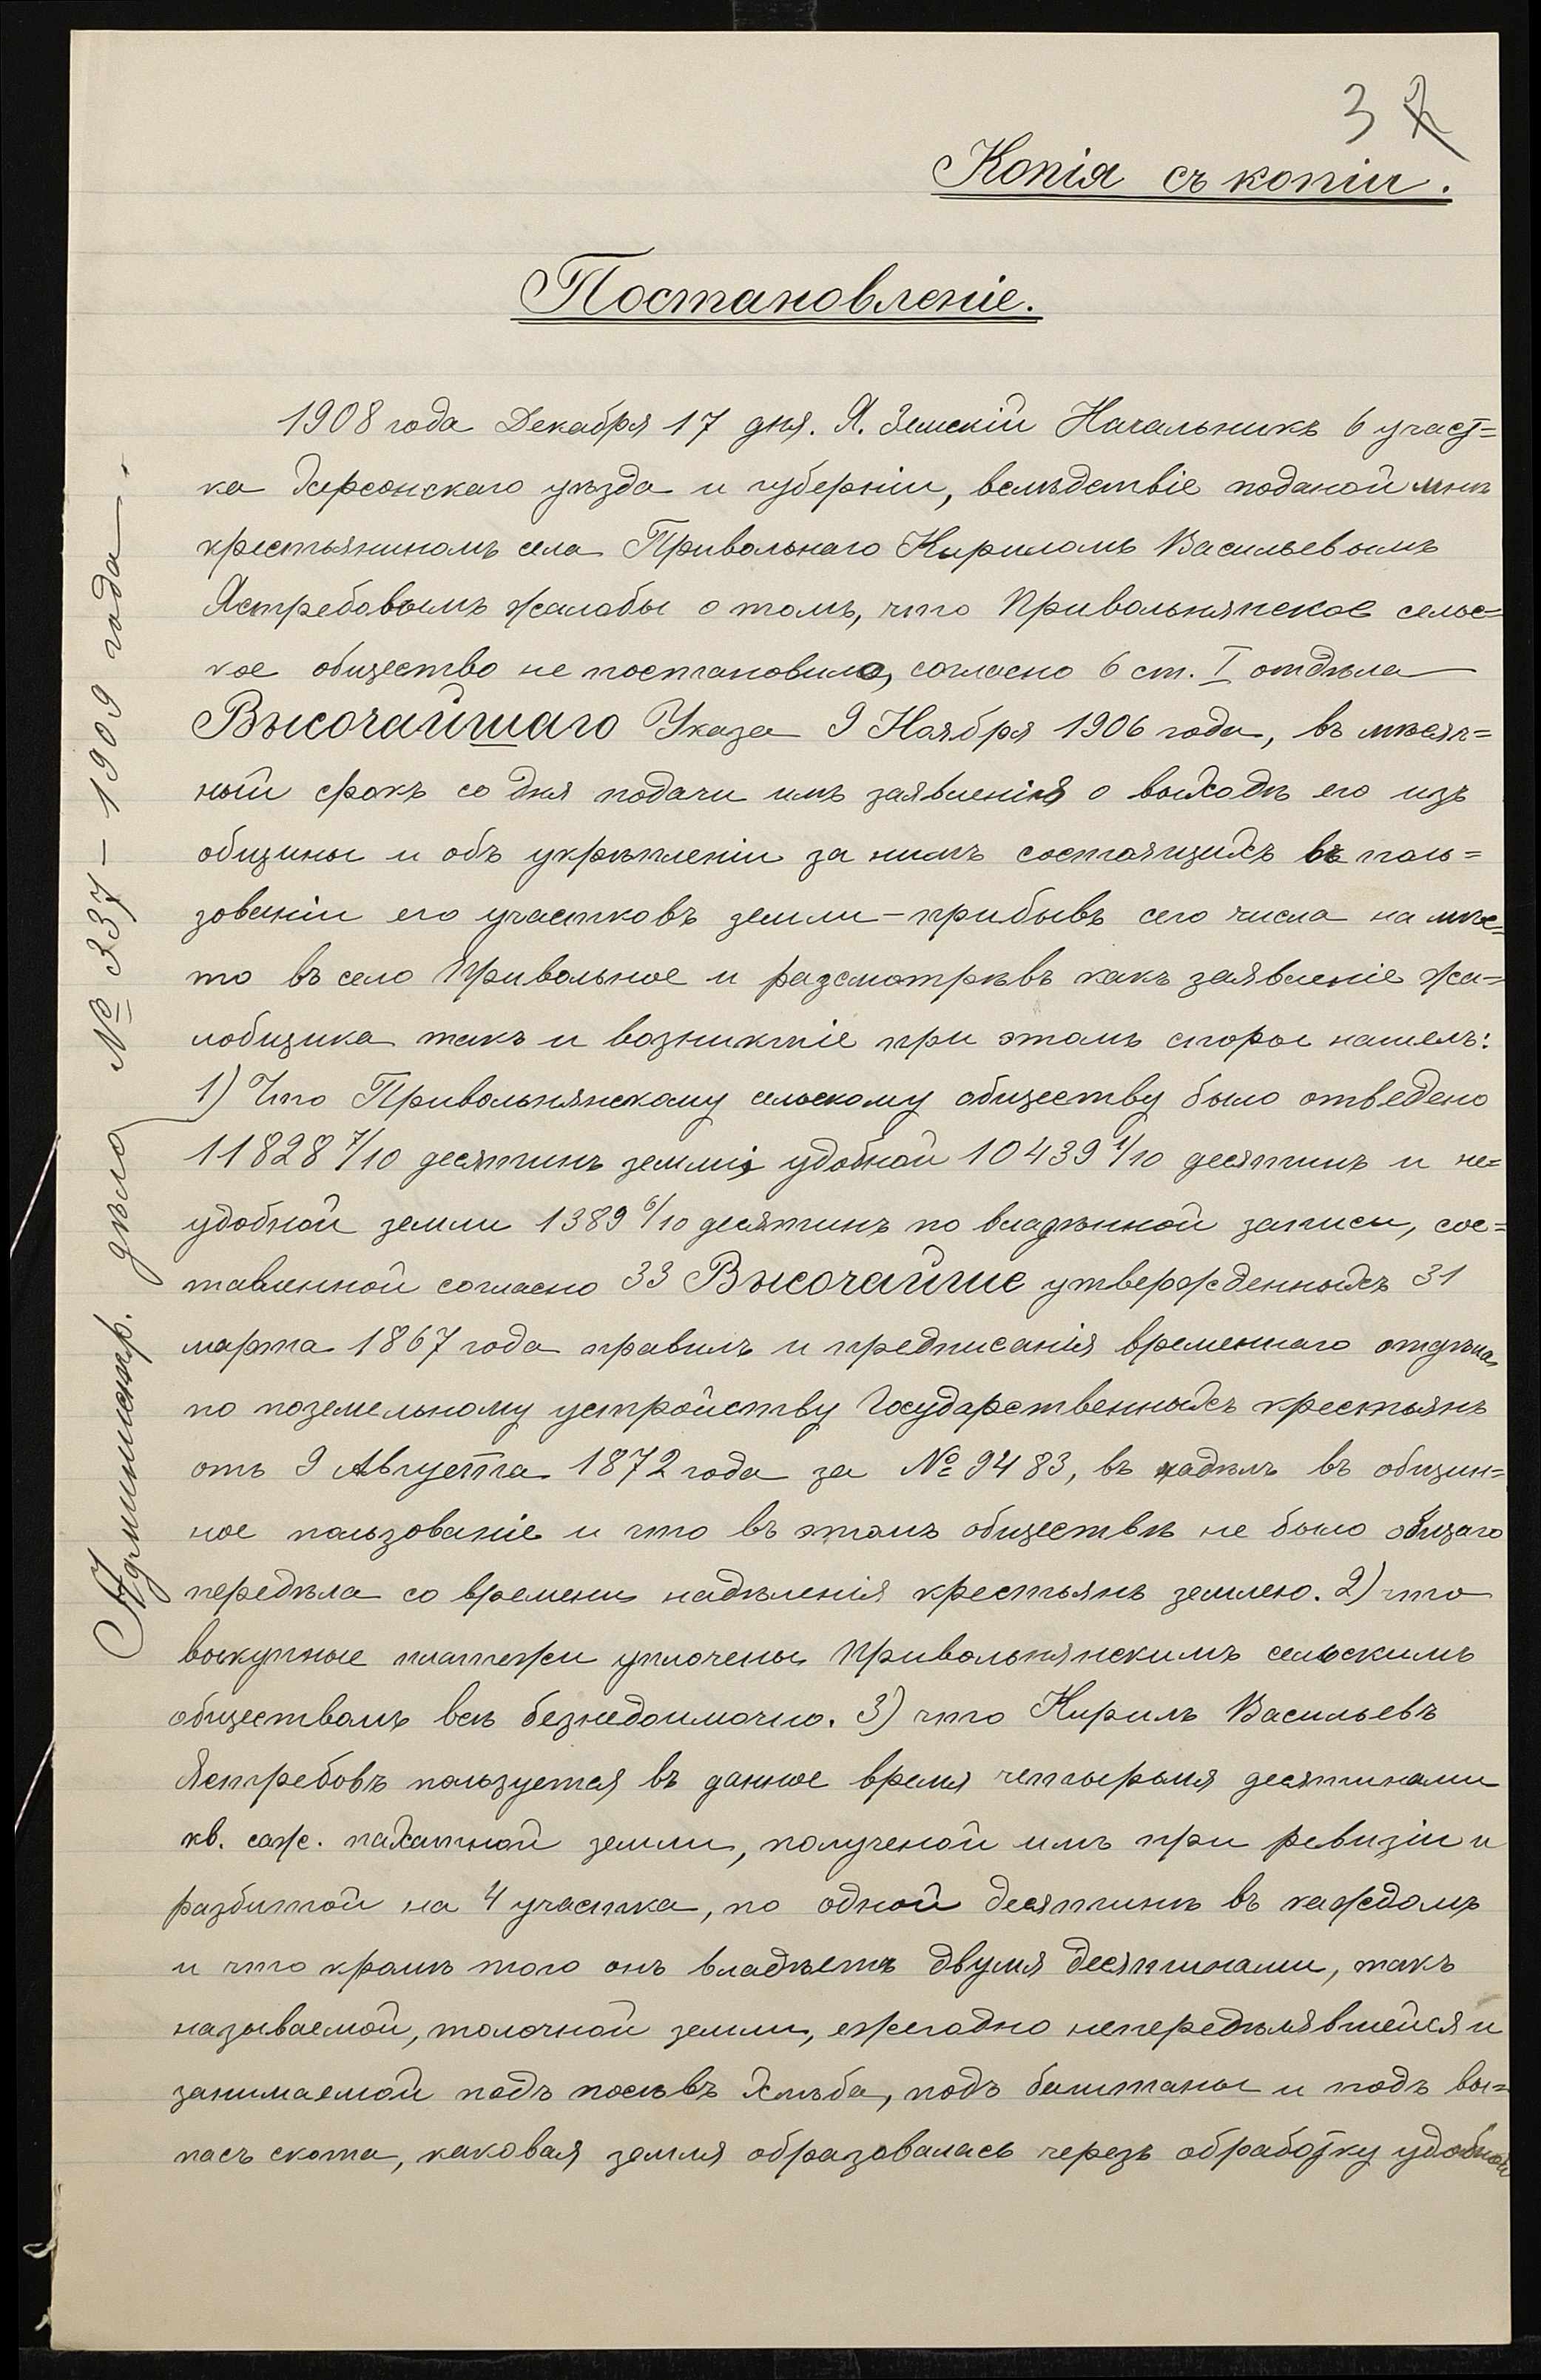 3 2
Копія съ копіи.
Постановленіе.
1908 года Декабря 17 дня. Я. Земскій Начальникъ 6 участ=
ка Херсонскаго уѣзда и губерніи, вслѣдствіе поданой мнѣ
крестьяниномъ села Привольнаго Кириломъ Васильевымъ
Ястребовымъ жалобы о томъ, что Привольнянское сельс=
кое общество не постановило, согласно 6 ст. I отдѣла
Высочайшаго Указа 9 Ноября 1906 года, въ мѣсяч=
ный срокъ со дня подачи имъ заявленія о выходѣ его изъ
общины и объ укрѣпленіи за нимъ состоящихъ въ поль=
зованіи его участковъ земли – прибывъ сего числа на мѣс=
то въ село Привольное и разсмотрѣвъ какъ заявленіе жа=
лобщика такъ и возникшіе при этомъ споры нашелъ:
1) Что Привольнянскому сельскому обществу было отведено
11828 7/10 десятинъ земли, удобной 10439 1/10 десятинъ и не=
удобной земли 1389 6/10 десятинъ по владѣнной записи, сос=
тавленной согласно 33 Высочайше утвержденныхъ 31
марта 1867 года правилъ и предписанія временнаго отдѣла
по поземельному устройству Государственныхъ крестьянъ
отъ 9 Августа 1872 года за № 9483, въ надѣлъ въ общин=
ное пользованіе и что въ этомъ обществѣ не было общаго
передѣла со времени надѣленія крестьянъ землею. 2) что
выкупные платежи уплочены Привольнянскимъ сельскимъ
обществомъ всѣ безнедоимочно. 3) что Кирилъ Васильевъ
Ястребовъ пользуется въ данное время четырьмя десятинами
кв. саж. пахатной земли, полученой имъ при ревизіи и
разбитой на 4 участка, по одной десятинѣ въ каждомъ
и что кромѣ того онъ владѣетъ двумя десятинами, такъ
называемой, толочной земли, ежегодно непередѣлявшейся и
занимаемой подъ посѣвъ хлѣба, подъ баштаны и подъ вы=
пасъ скота, каковая земля образовалась черезъ обработку удобной
Администр. дѣло № 337 – 1909 года